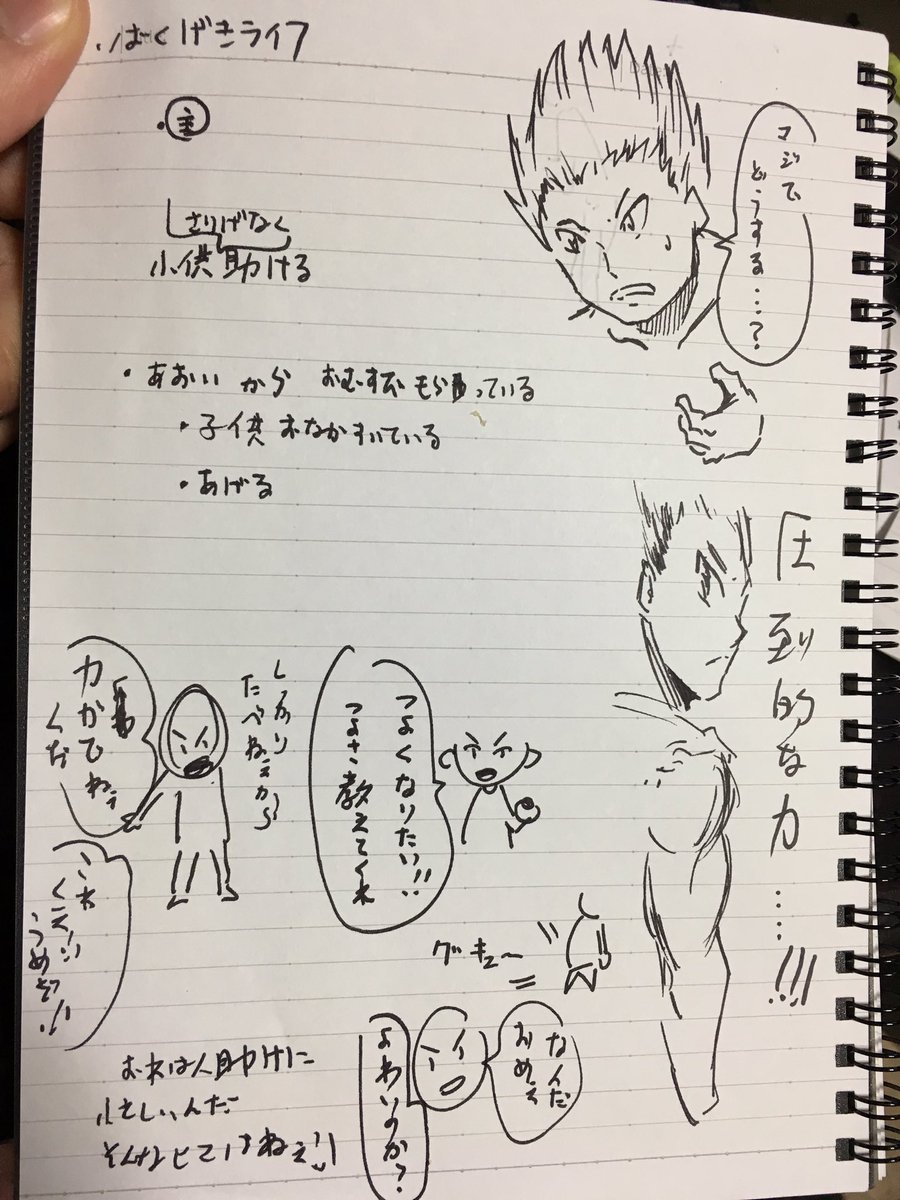 ・ばくげきライフ
・主
さりげなく
小供助ける
・あおいから おむすび もらっている
・子供 おなかすいている
・あげる
マジで
どうする…?
圧倒的な力……!!!
つよくなりたい!!
つよさ教えてくれ
しっかり
たべねぇから
力がでねぇ
くだ
これ
くえ!!
うめぇぞ!!
グキュー
なんだ
おめぇ
よわいのか?
おれは人助けに
忙しいんだ
そんなヒマはねぇ!!